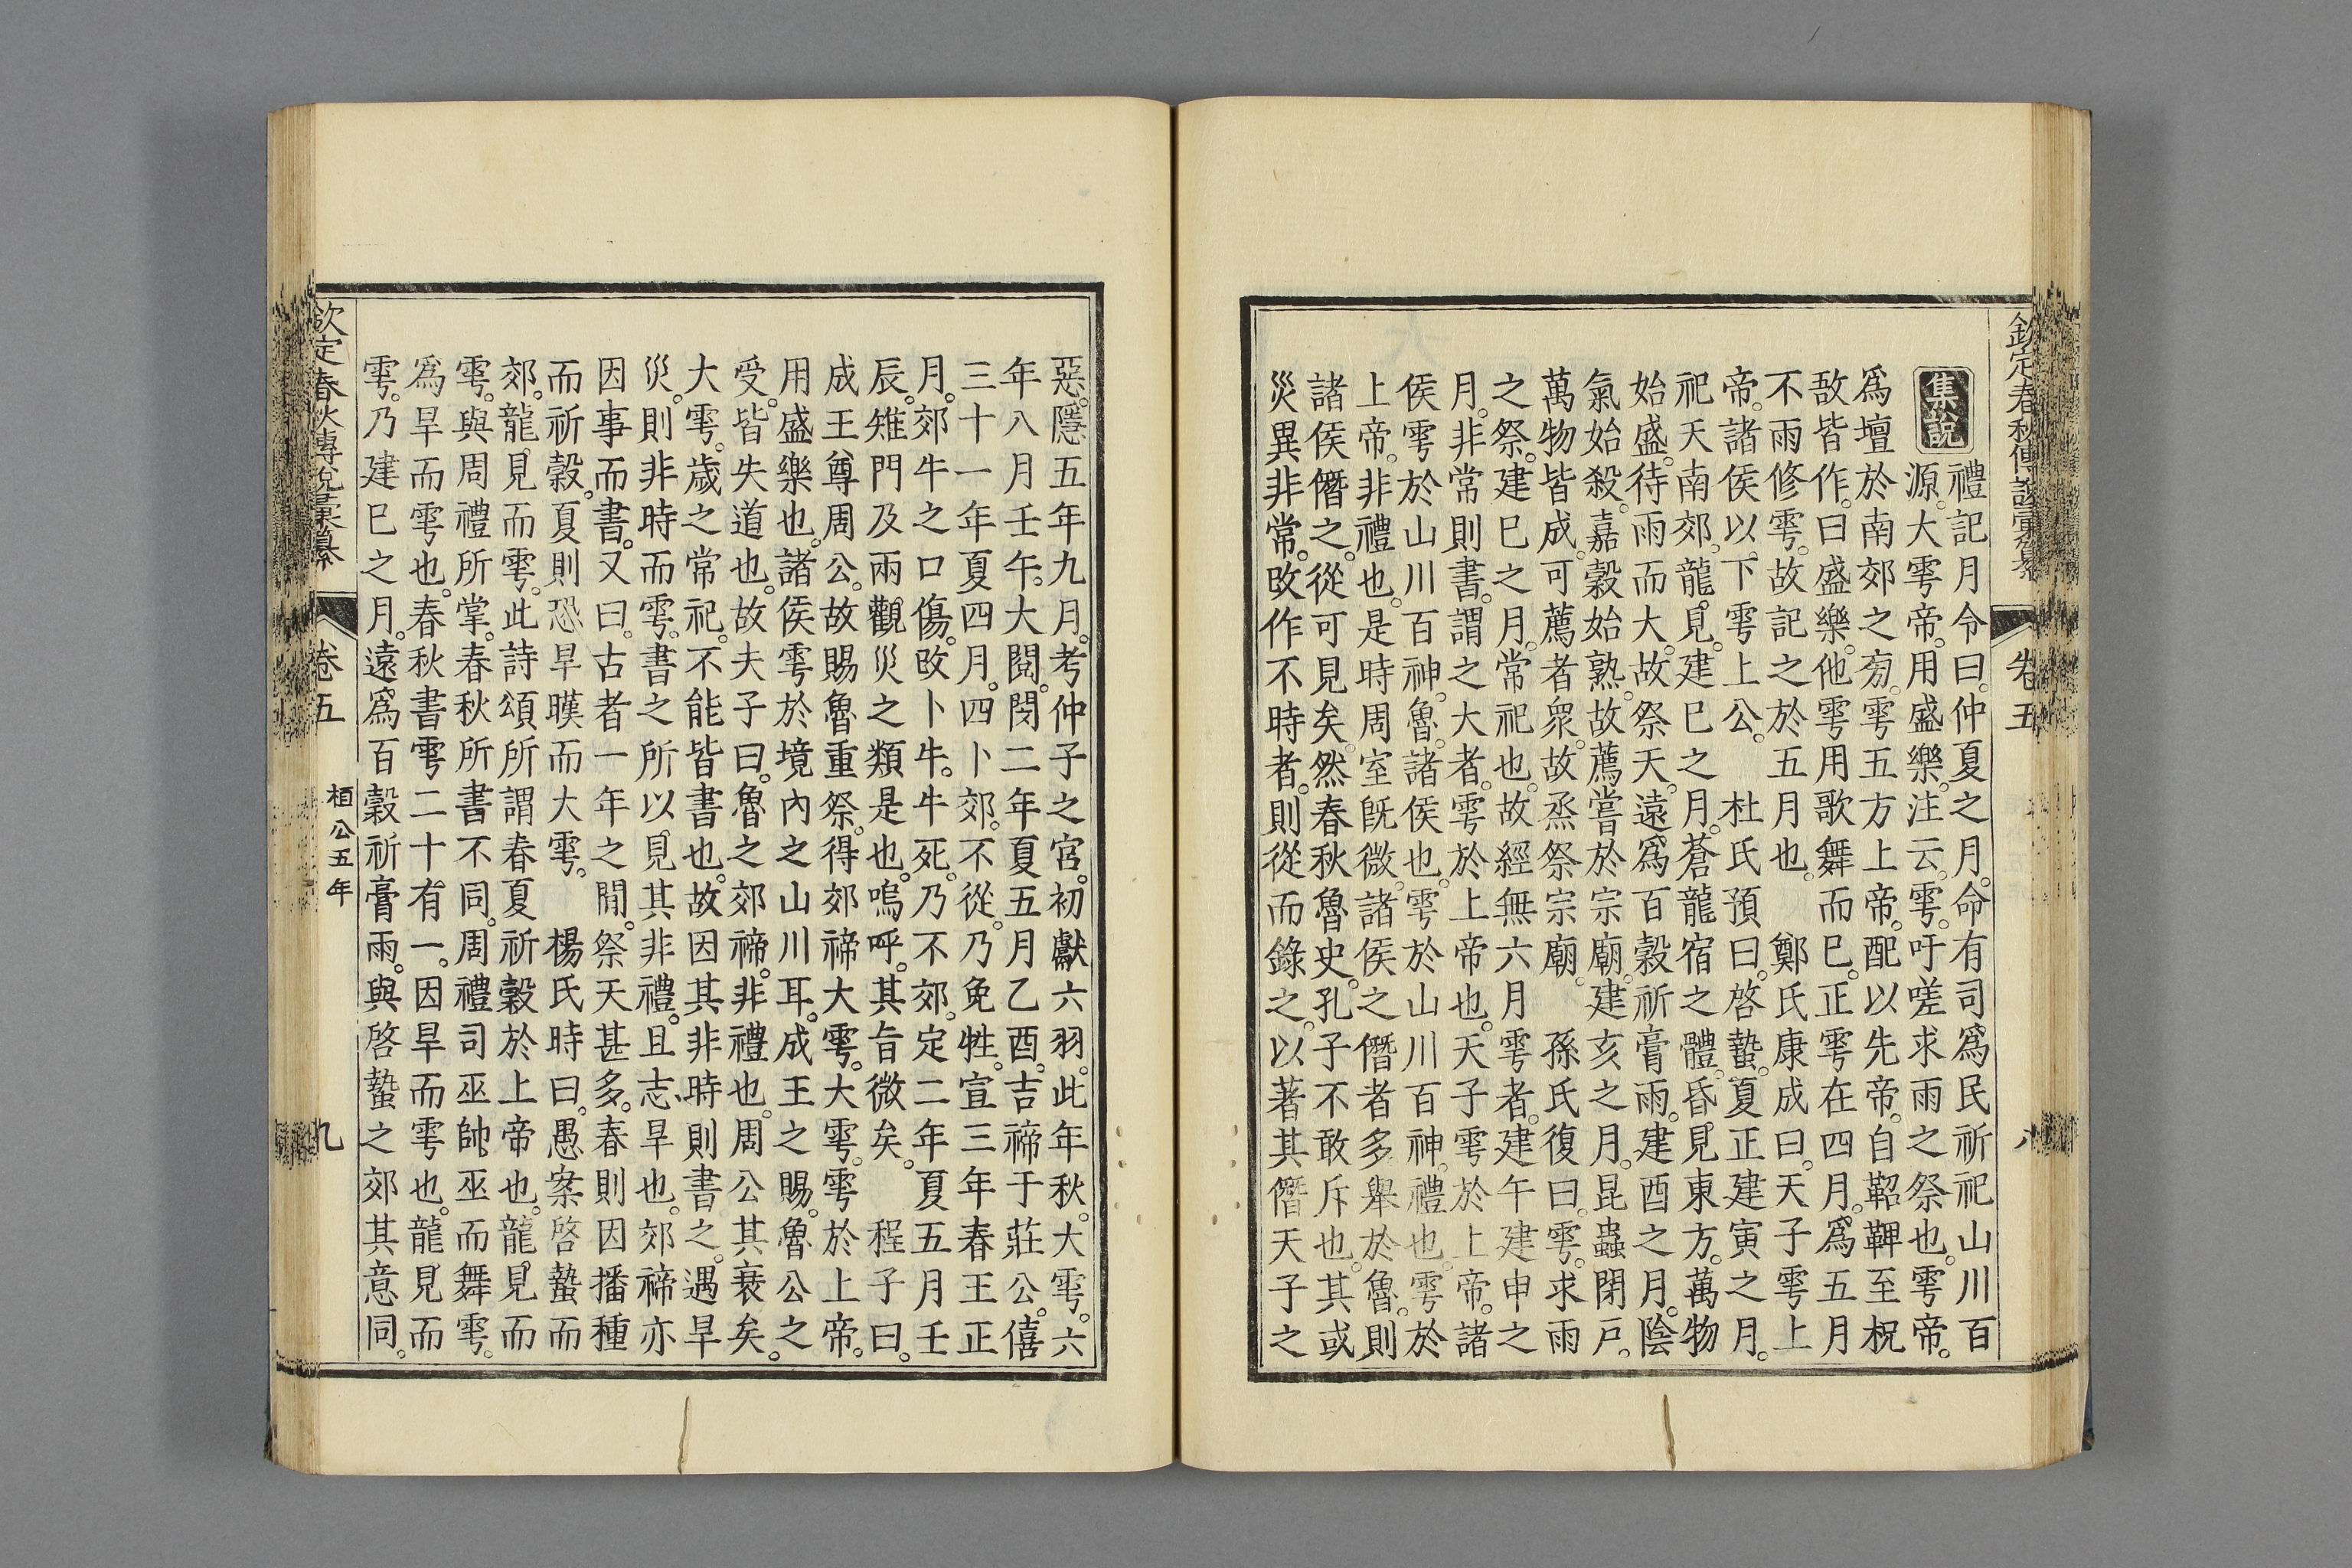 欽定春秋傳說彙纂 卷五 八
集說
禮記月令曰。仲夏之月。命有司爲民祈祀山川百
源。大雩帝。用盛樂。注云。雩。吁嗟求雨之祭也。雩帝。
爲壇於南郊之旁。雩五方上帝。配以先帝。自鞀鞞至柷
敔皆作。曰盛樂。他雩用歌舞而已。正雩在四月。爲五月
不雨修雩。故記之於五月也。 鄭氏康成曰。天子雩上
帝。諸侯以下雩上公。 杜氏預曰。啓蟄。夏正建寅之月。
祀天南郊。龍見。建巳之月。蒼龍宿之體。昏見東方。萬物
始盛。待雨而大。故祭天。遠爲百穀祈膏雨。建酉之月。陰
氣始殺。嘉穀始熟。故薦嘗於宗廟。建亥之月。昆蟲閉戶。
萬物皆成。可薦者衆。故烝祭宗廟。 孫氏復曰。雩。求雨
之祭。建巳之月。常祀也。故經無六月雩者。建午建申之
月。非常則書。謂之大者。雩於上帝也。天子雩於上帝。諸
侯雩於山川百神。魯。諸侯也。雩於山川百神。禮也。雩於
上帝。非禮也。是時周室旣微。諸侯之僭者多舉於魯。則
諸侯僭之。從可見矣。然春秋魯史。孔子不敢斥也。其或
災異非常。改作不時者。則從而錄之。以著其僭天子之
惡。隱五年九月。考仲子之宮。初獻六羽。此年秋。大雩。六
年八月壬午。大閱。閔二年夏五月乙酉。吉禘于莊公。僖
三十一年夏四月。四卜郊。不從。乃免牲。宣三年春王正
月。郊牛之口傷。改卜牛。牛死。乃不郊。定二年夏五月壬
辰。雉門及兩觀災之類是也。嗚呼。其旨微矣。 程子曰。
成王尊周公。故賜魯重祭。得郊禘大雩。大雩。雩於上帝。
用盛樂也。諸侯雩於境內之山川耳。成王之賜。魯公之
受。皆失道也。故夫子曰。魯之郊禘。非禮也。周公其衰矣。
大雩。歲之常祀。不能皆書也。故因其非時則書之。遇旱
災。則非時而雩。書之所以見其非禮。且志旱也。郊禘亦
因事而書。又曰。古者一年之間。祭天甚多。春則因播種
而祈穀。夏則恐旱暵而大雩。 楊氏時曰。愚案啓蟄而
郊。龍見而雩。此詩頌所謂春夏祈穀於上帝也。龍見而
雩。與周禮所掌。春秋所書不同。周禮司巫帥巫而舞雩。
爲旱而雩也。春秋書雩二十有一。因旱而雩也。龍見而
雩。乃建巳之月。遠爲百穀祈膏雨。與啓蟄之郊其意同。
欽定春秋傳說彙纂 卷五 桓公五年 九